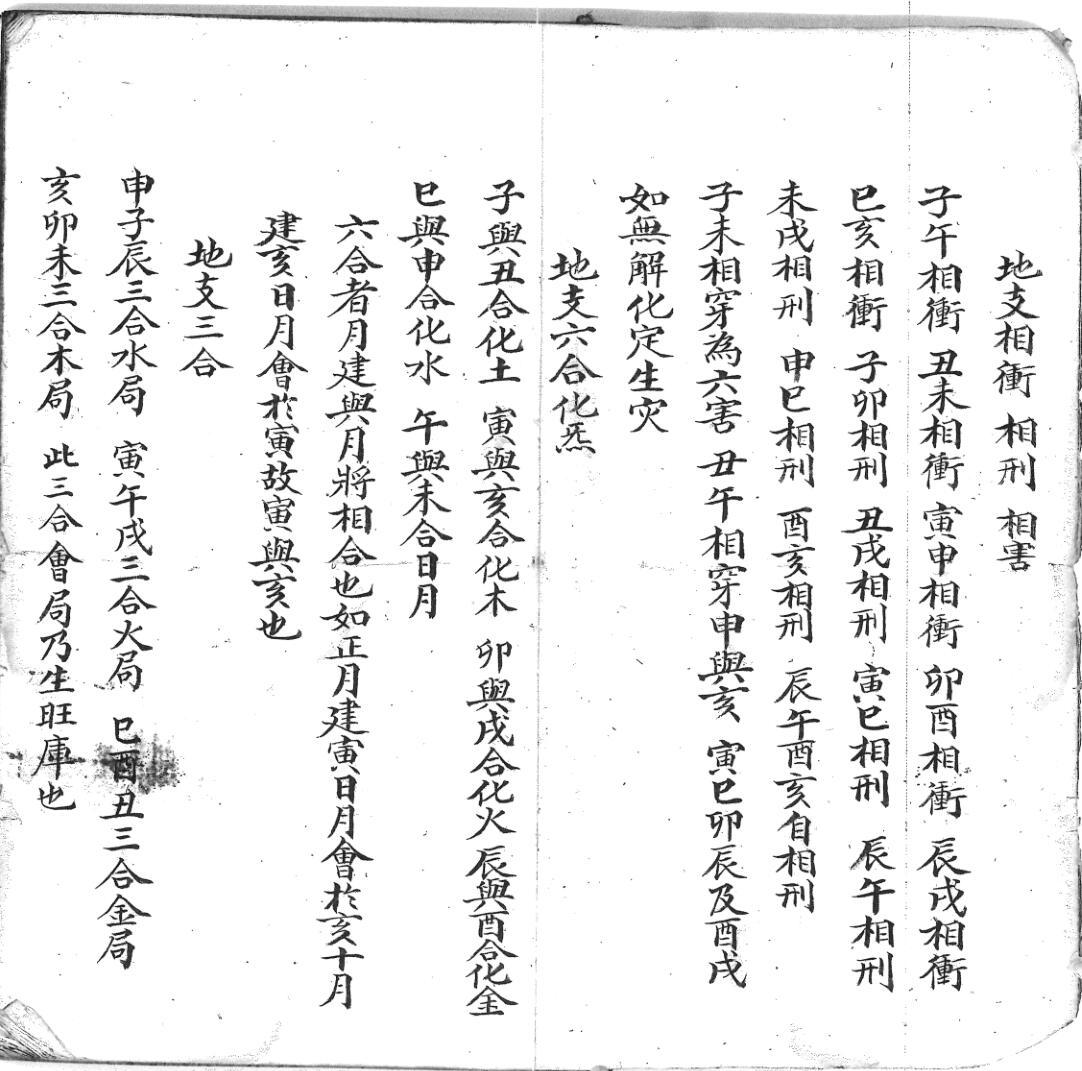 地支相衝 相刑 相害
子午相衝 丑未相衝 寅申相衝 卯酉相衝 辰戌相衝
巳亥相衝 子卯相刑 丑戌相刑 寅巳相刑 辰午相刑
未戌相刑 申巳相刑 酉亥相刑 辰午酉亥自相刑
子未相穿為六害 丑午相穿申與亥 寅巳卯辰及酉戌
如無解化定生灾
地支六合化炁
子與丑合化土 寅與亥合化木 卯與戌合化火 辰與酉合化金
巳與申合化水 午與未合日月
六合者月建與月將相合也如正月建寅日月會於亥十月
建亥日月會於寅故寅與亥也
地支三合
申子辰三合水局 寅午戌三合火局 巳酉丑三合金局
亥卯未三合木局 此三合會局乃生旺庫也